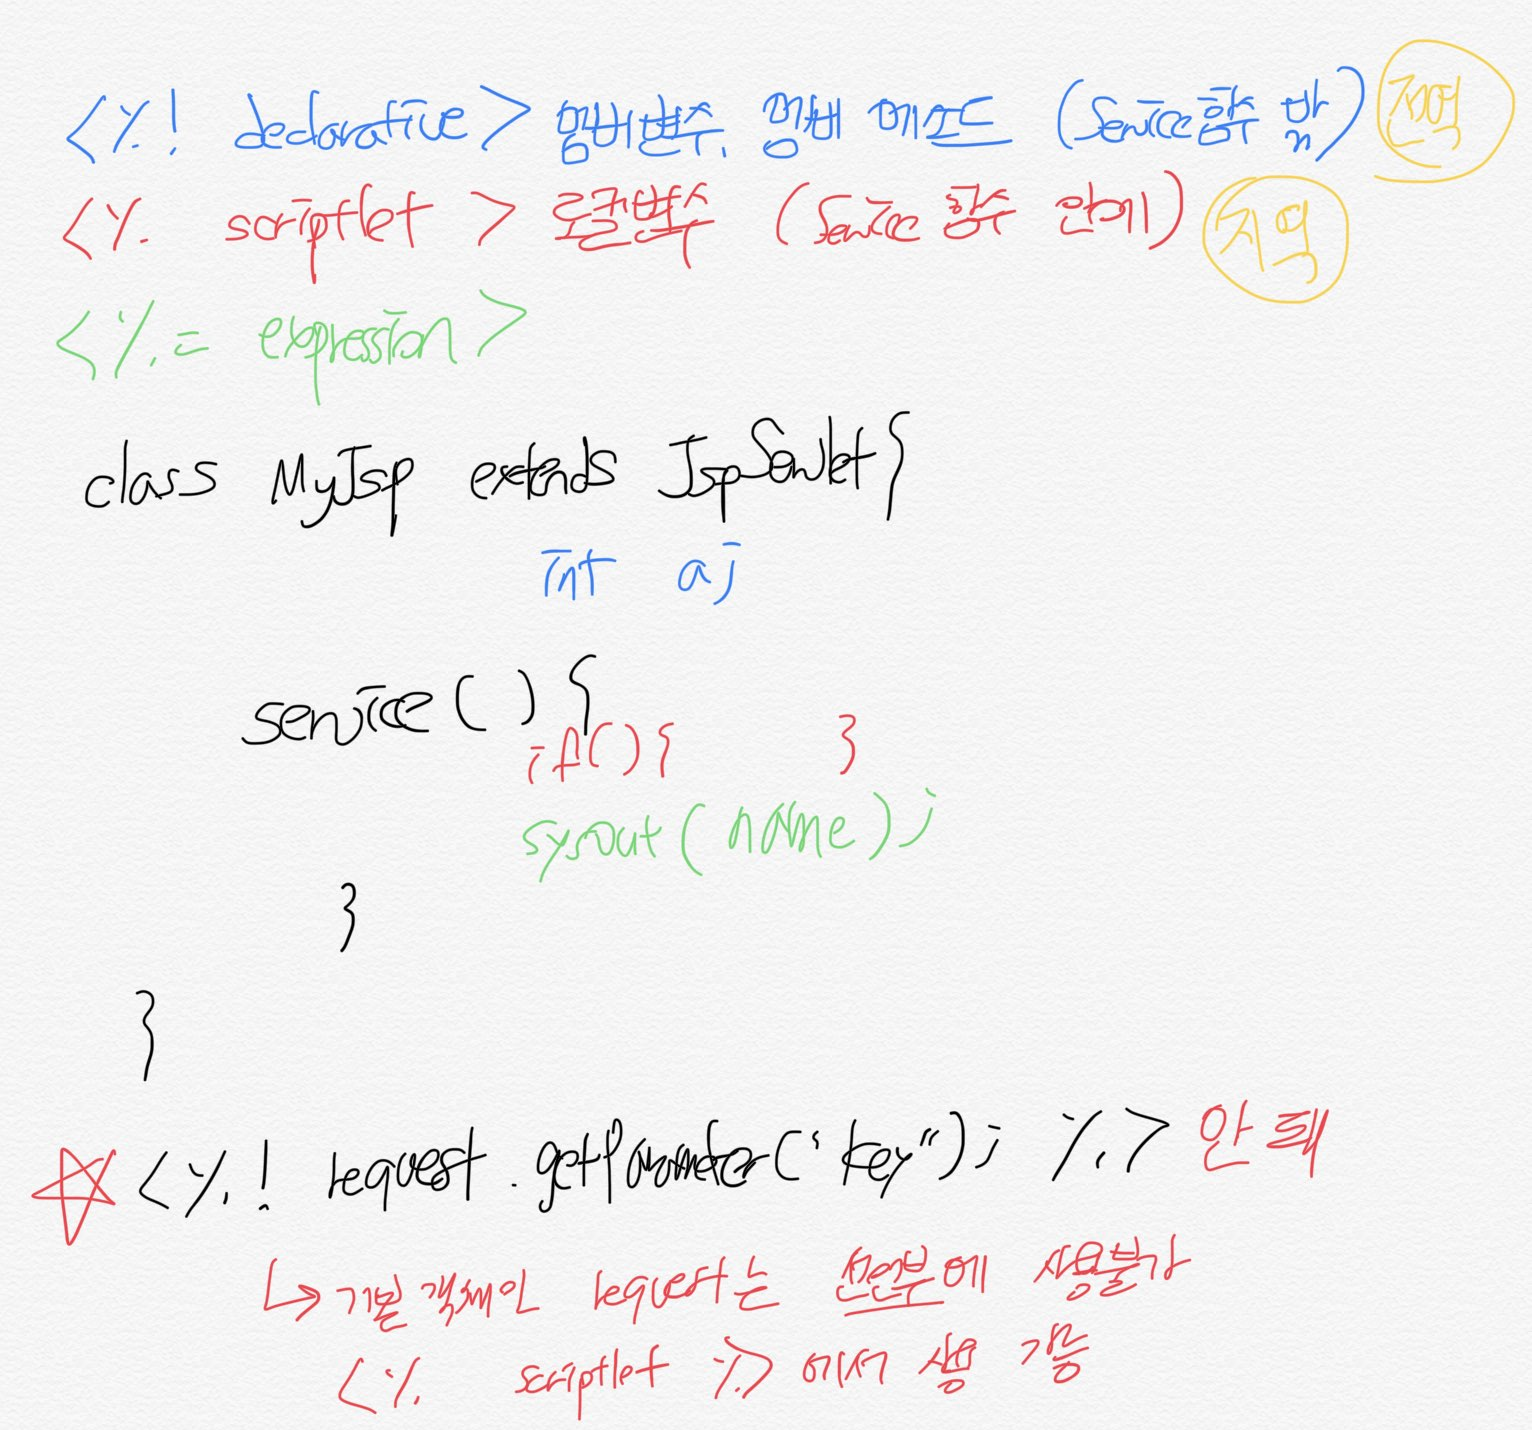 <%! declarative> 멤버변수, 멤버 메소드 (Service함수 밖) 전역
<% scriptlet > 로컬변수 (Service 함수 안에) 지역
<%= expression>
class MyJsp extends JspServlet{
int a;
service() {
if(){ }
sysout(name);
}
}
☆ <%! request.getParameter("key"); %> 안돼
↳ 기본 객체인 request는 선언부에 사용불가
<% scriptlet %> 에서 사용 가능